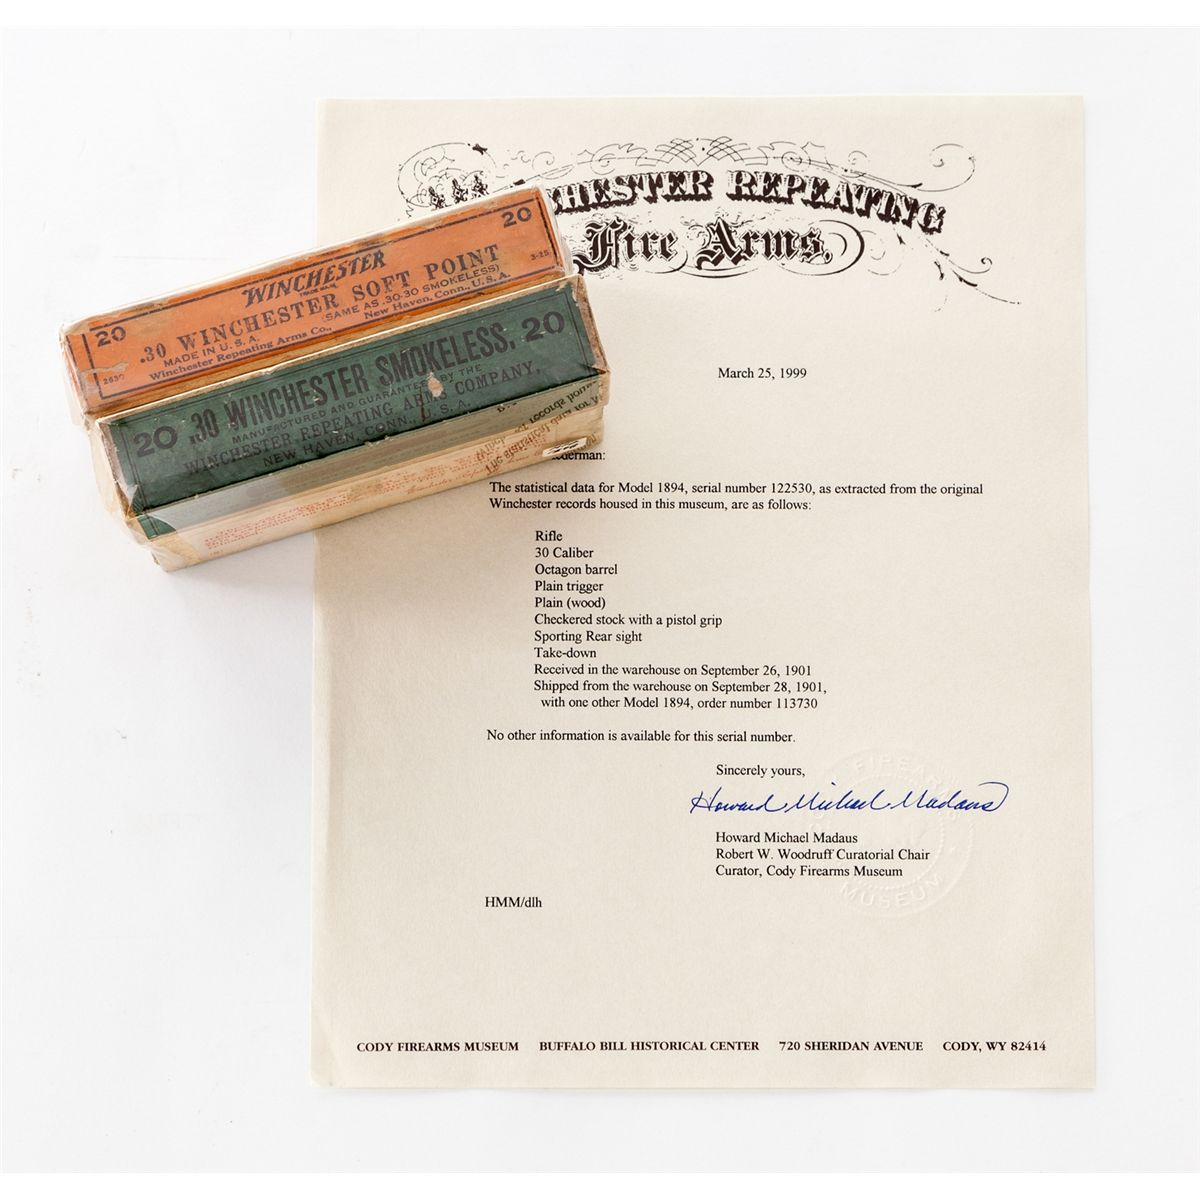 CHESTER REPEATING
Fire Arms.
20
WINCHESTER
TRADE MARK
20 .30 WINCHESTER SOFT POINT
(SAME AS .30-30 SMOKELESS)
MADE IN U.S.A.
Winchester Repeating Arms Co., New Haven, Conn., U.S.A.
2630
3-25
20 .30 WINCHESTER SMOKELESS, 20
MANUFACTURED AND GUARANTEED BY THE
WINCHESTER REPEATING ARMS COMPANY,
NEW HAVEN, CONN., U.S.A.
March 25, 1999
ederman:
The statistical data for Model 1894, serial number 122530, as extracted from the original
Winchester records housed in this museum, are as follows:
Rifle
30 Caliber
Octagon barrel
Plain trigger
Plain (wood)
Checkered stock with a pistol grip
Sporting Rear sight
Take-down
Received in the warehouse on September 26, 1901
Shipped from the warehouse on September 28, 1901,
with one other Model 1894, order number 113730
No other information is available for this serial number.
Sincerely yours,
Howard Michael Madaus
Howard Michael Madaus
Robert W. Woodruff Curatorial Chair
Curator, Cody Firearms Museum
FIREARMS
MUSEUM
HMM/dlh
CODY FIREARMS MUSEUM BUFFALO BILL HISTORICAL CENTER 720 SHERIDAN AVENUE CODY, WY 82414